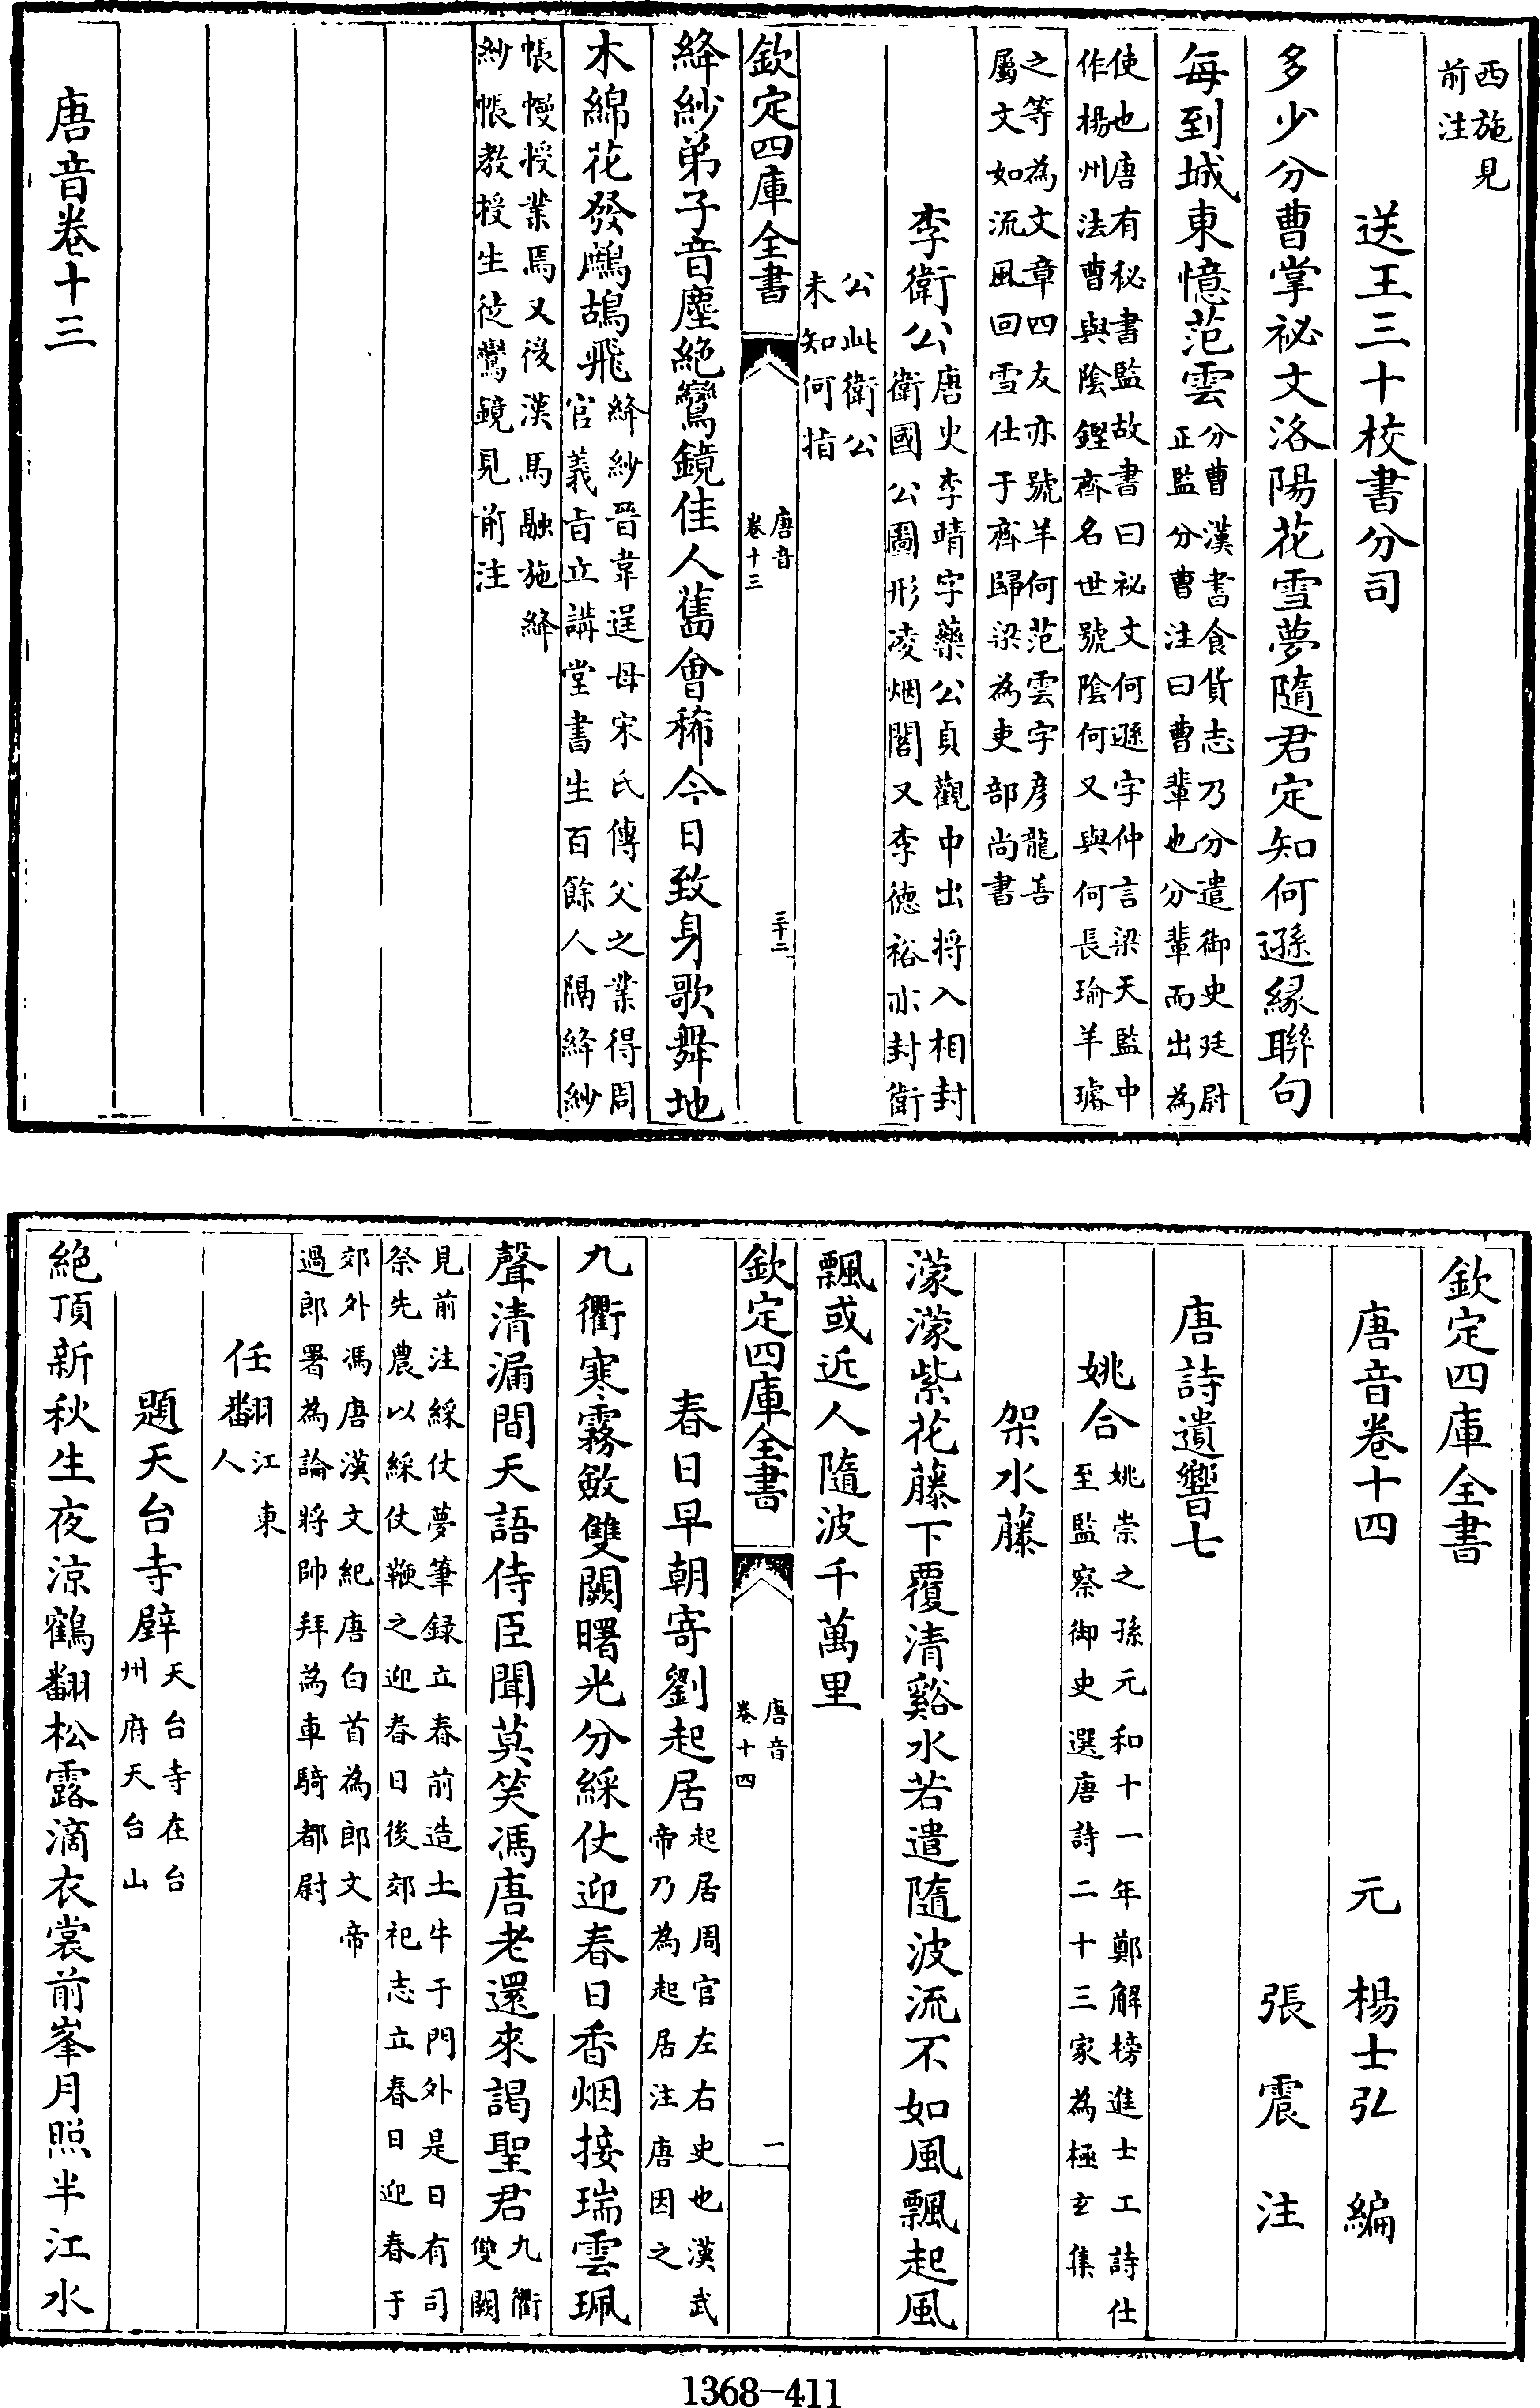 西施見
前注
送王三十校書分司
多少分曹掌祕文洛陽花雪夢隨君定知何遜緣聯句
每到城東憶范雲
分曹漢書食貨志乃分遣御史廷尉
正監分曹注曰曹輩也分輩而出為
使也唐有秘書監故書曰祕文何遜字仲言梁天監中
作楊州法曹與陰鏗齊名世號陰何又與何長瑜羊璿
之等為文章四友亦號羊何范雲字彥龍善
屬文如流風回雪仕于齊歸梁為吏部尚書
李衛公
唐史李靖字藥公貞觀中出將入相封
衛國公圖形凌烟閣又李德裕亦封衛
公此衛公
未知何指
欽定四庫全書
唐音
卷十三
三十二
絳紗弟子音塵絕鸞鏡佳人舊會稀今日致身歌舞地
木綿花發鷓鴣飛
絳紗晉韋逞母宋氏傳父之業得周
官義旨立講堂書生百餘人隔絳紗
帳幔授業焉又後漢馬融施絳
紗帳教授生徒鸞鏡見前注
唐音卷十三
欽定四庫全書
唐音卷十四
元 楊士弘 編
張震 注
唐詩遺響七
姚合
姚崇之孫元和十一年鄭解榜進士工詩仕
至監察御史選唐詩二十三家為極玄集
架水藤
濛濛紫花藤下覆清谿水若遣隨波流不如風飄起風
飄或近人隨波千萬里
欽定四庫全書
唐音
卷十四
一
春日早朝寄劉起居
起居周官左右史也漢武
帝乃為起居注唐因之
九衢寒霧斂雙闕曙光分綵仗迎春日香烟接瑞雲珮
聲清漏間天語侍臣聞莫笑馮唐老還來謁聖君
九衢
雙闕
見前注綵仗夢筆録立春前造土牛于門外是日有司
祭先農以綵仗鞭之迎春日後郊祀志立春日迎春于
郊外馮唐漢文紀唐白首為郎文帝
過郎署為論將帥拜為車騎都尉
任翻
江東
人
題天台寺壁
天台寺在台
州府天台山
絕頂新秋生夜涼鶴翻松露滴衣裳前峯月照半江水
1368—411